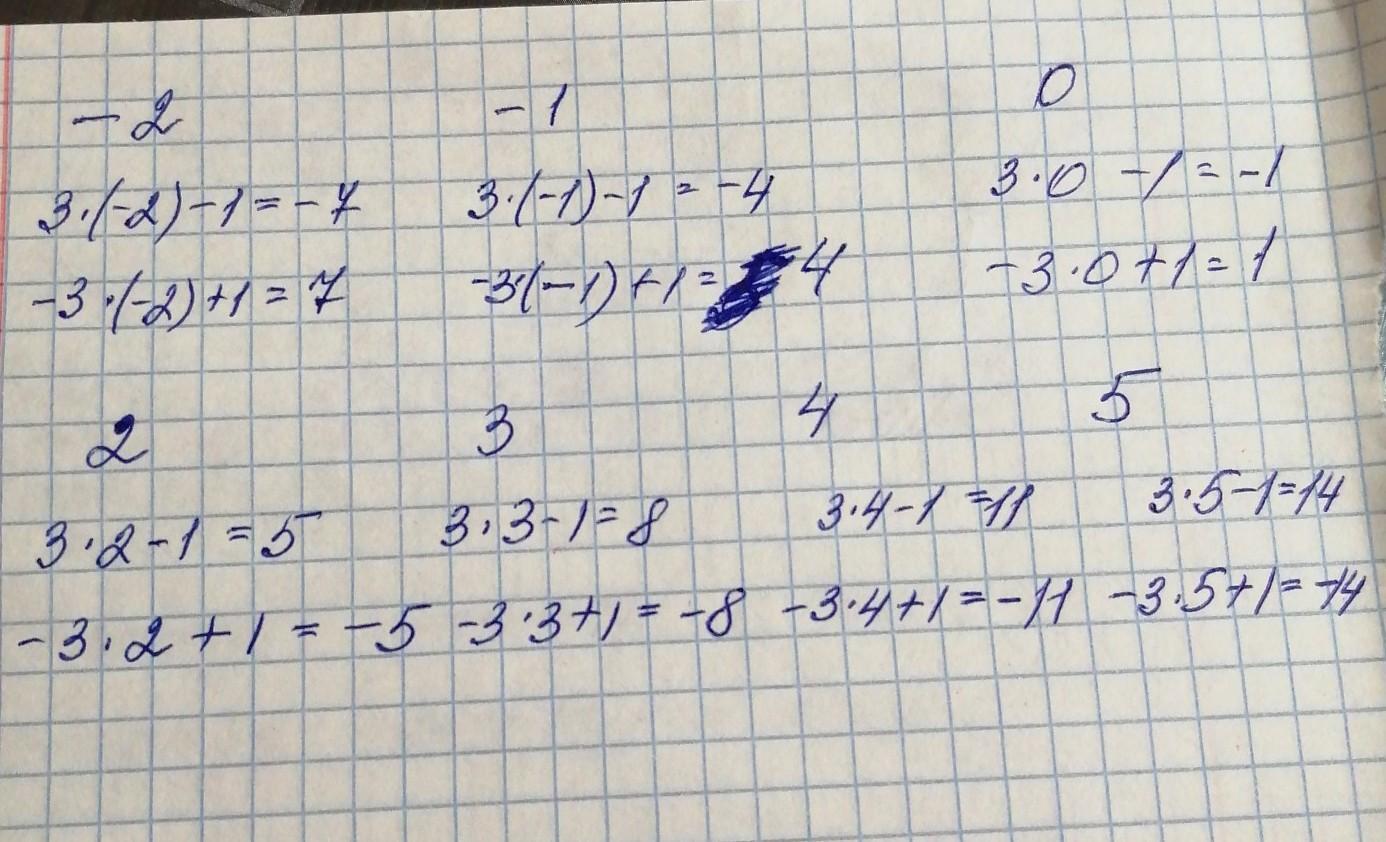 -2 -1 0
3·(-2)-1=-7 3·(-1)-1=-4 3·0-1=-1
-3·(-2)+1=7 -3·(-1)+1=4 -3·0+1=1
2 3 4 5
3·2-1=5 3·3-1=8 3·4-1=11 3·5-1=14
-3·2+1=-5 -3·3+1=-8 -3·4+1=-11 -3·5+1=-14